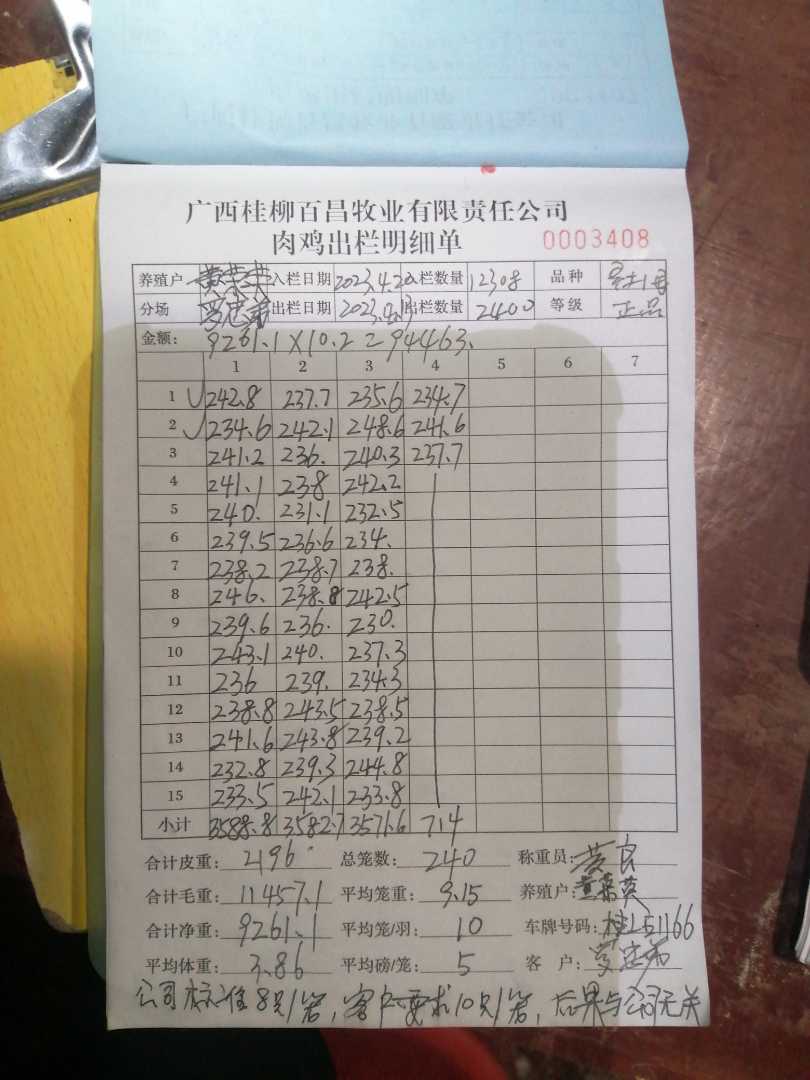 广西桂柳百昌牧业有限责任公司
肉鸡出栏明细单 0003408
养殖户 黄荣英 入栏日期 2023.4.20 入栏数量 12308 品种
分场 出栏日期 出栏数量 2400 等级 正品
金额: 9261.1×10.2=94463.
1 2 3 4 5 6 7
1 242.8 237.7 235.6 234.7
2 234.6 242.1 248.6 241.6
3 241.2 236. 240.3 237.7
4 241.1 238 242.2
5 240. 231.1 232.5
6 239.5 236.6 234.
7 238.2 238.7 238.
8 246. 238.8 242.5
9 239.6 236. 230.
10 243.1 240. 237.3
11 236 239. 234.3
12 238.8 243.5 238.5
13 241.6 243.8 239.2
14 232.8 239.3 244.8
15 233.5 242.1 233.8
小计 3588.8 3582.7 3571.6 714
合计皮重: 2196 总笼数: 240 称重员: 黄良
合计毛重: 11457.1 平均笼重: 9.15 养殖户: 黄荣英
合计净重: 9261.1 平均笼/羽: 10 车牌号码: 桂L51166
平均体重: 3.86 平均磅/笼: 5 客 户:
公司标准8只/笼,客户要求10只/笼,后果与公司无关